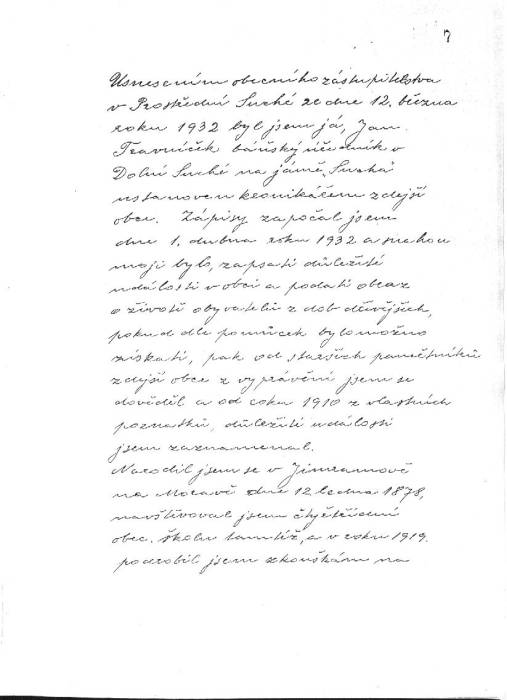 7
Usnesením obecního zástupitelstva
v Prostřední Suché ze dne 12. března
roku 1932 byl jsem já, Jan
Travníček báňský úředník v
Dolní Suché na jámě „Suchá"
ustanoven kronikářem zdejší
obce. Zápisy započal jsem
dne 1. dubna roku 1932 a snahou
mojí bylo, zapsati důležité
události v obci a podati obraz
o životě obyvatelů z dob dřívějších,
pokud dle pomůcek bylo možno
získati, pak od starších pamětníků
zdejší obce z vyprávění jsem se
dověděl a od roku 1910 z vlastních
poznatků, důležité události
jsem zaznamenal.
Narodil jsem se v Jimramově
na Moravě dne 12 ledna 1878,
navštěvoval jsem čtyřtřídní
obec. školu tamtéž, a v roku 1919.
podrobil jsem zkouškám na